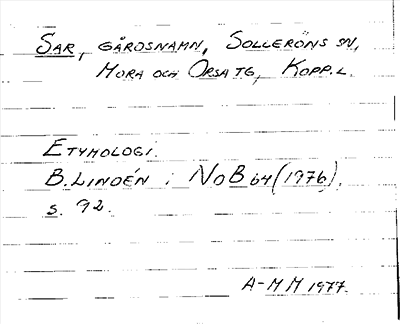 SAR, GÅRDSNAMN, SOLLERÖNS SN,
MORA OCH ORSA TG, KOPP.L.
ETYMOLOGI.
B. LINDÉN i NoB 64 (1976),
s. 92.
A-MM 1977.